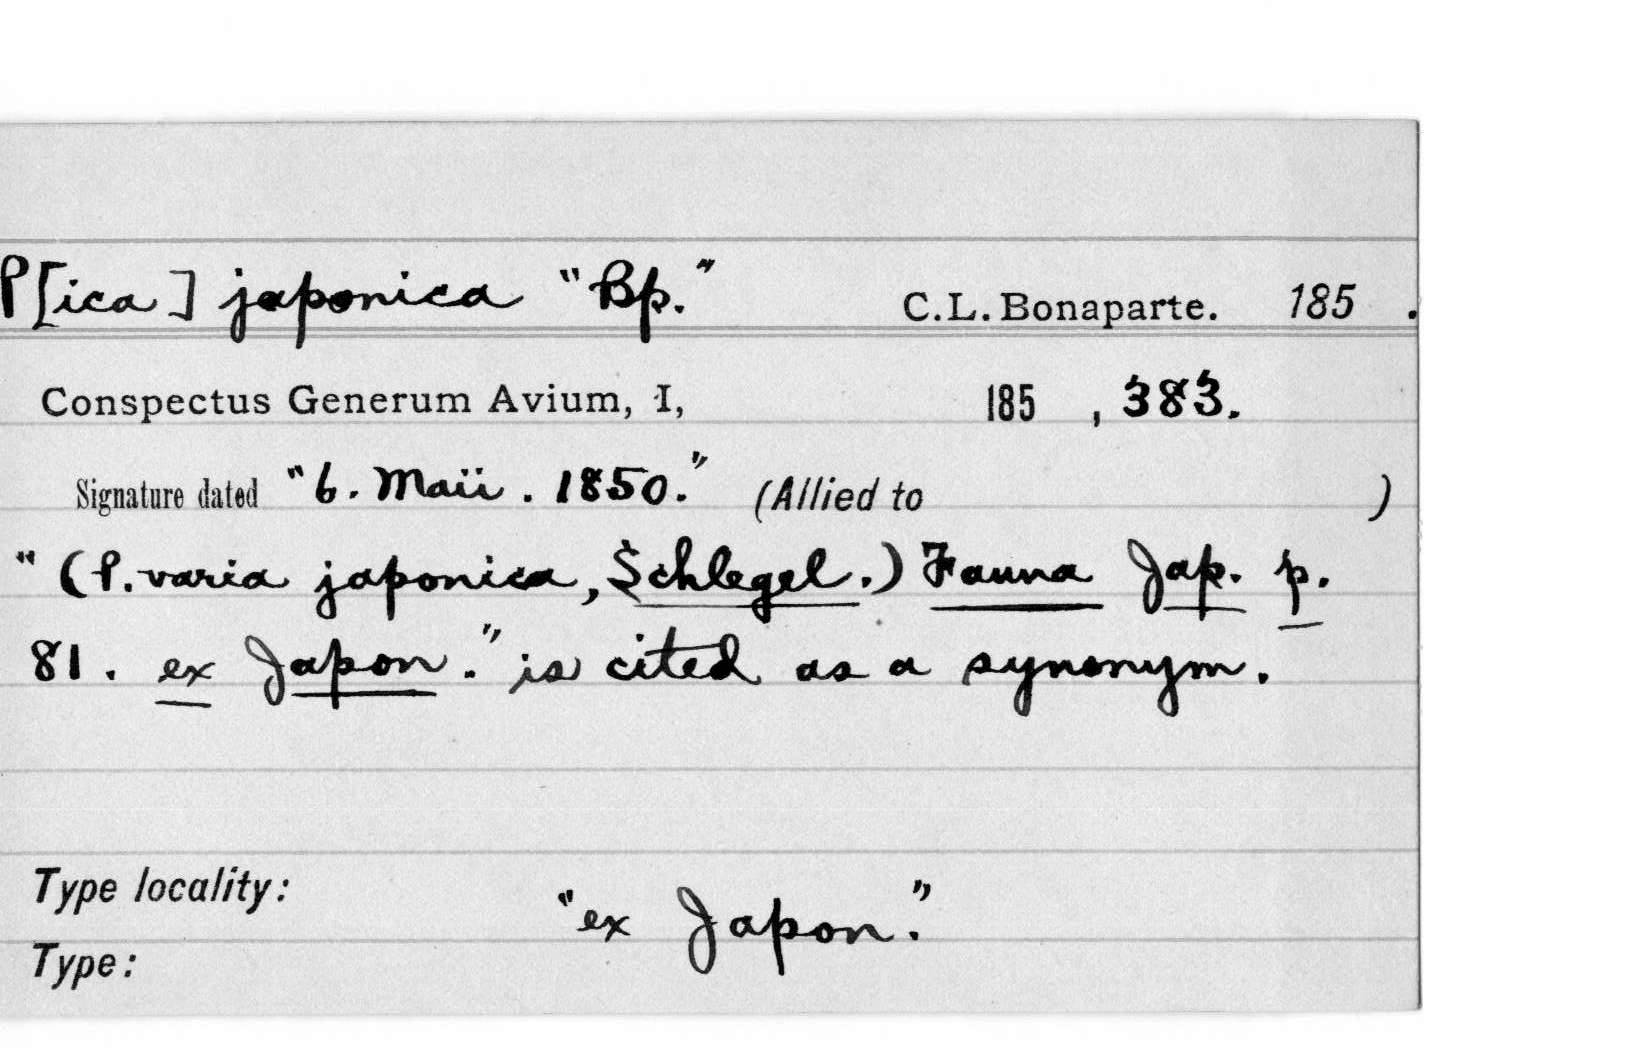 P[ica] japonica "Bp." C.L. Bonaparte. 185 .
Conspectus Generum Avium, I, 185 , 383.
Signature dated "6. Maii. 1850." (Allied to )
"(P. varia japonica, Schlegel.) Fauna Jap. p.
81. ex Japon." is cited as a synonym.
Type locality: "ex Japon."
Type: